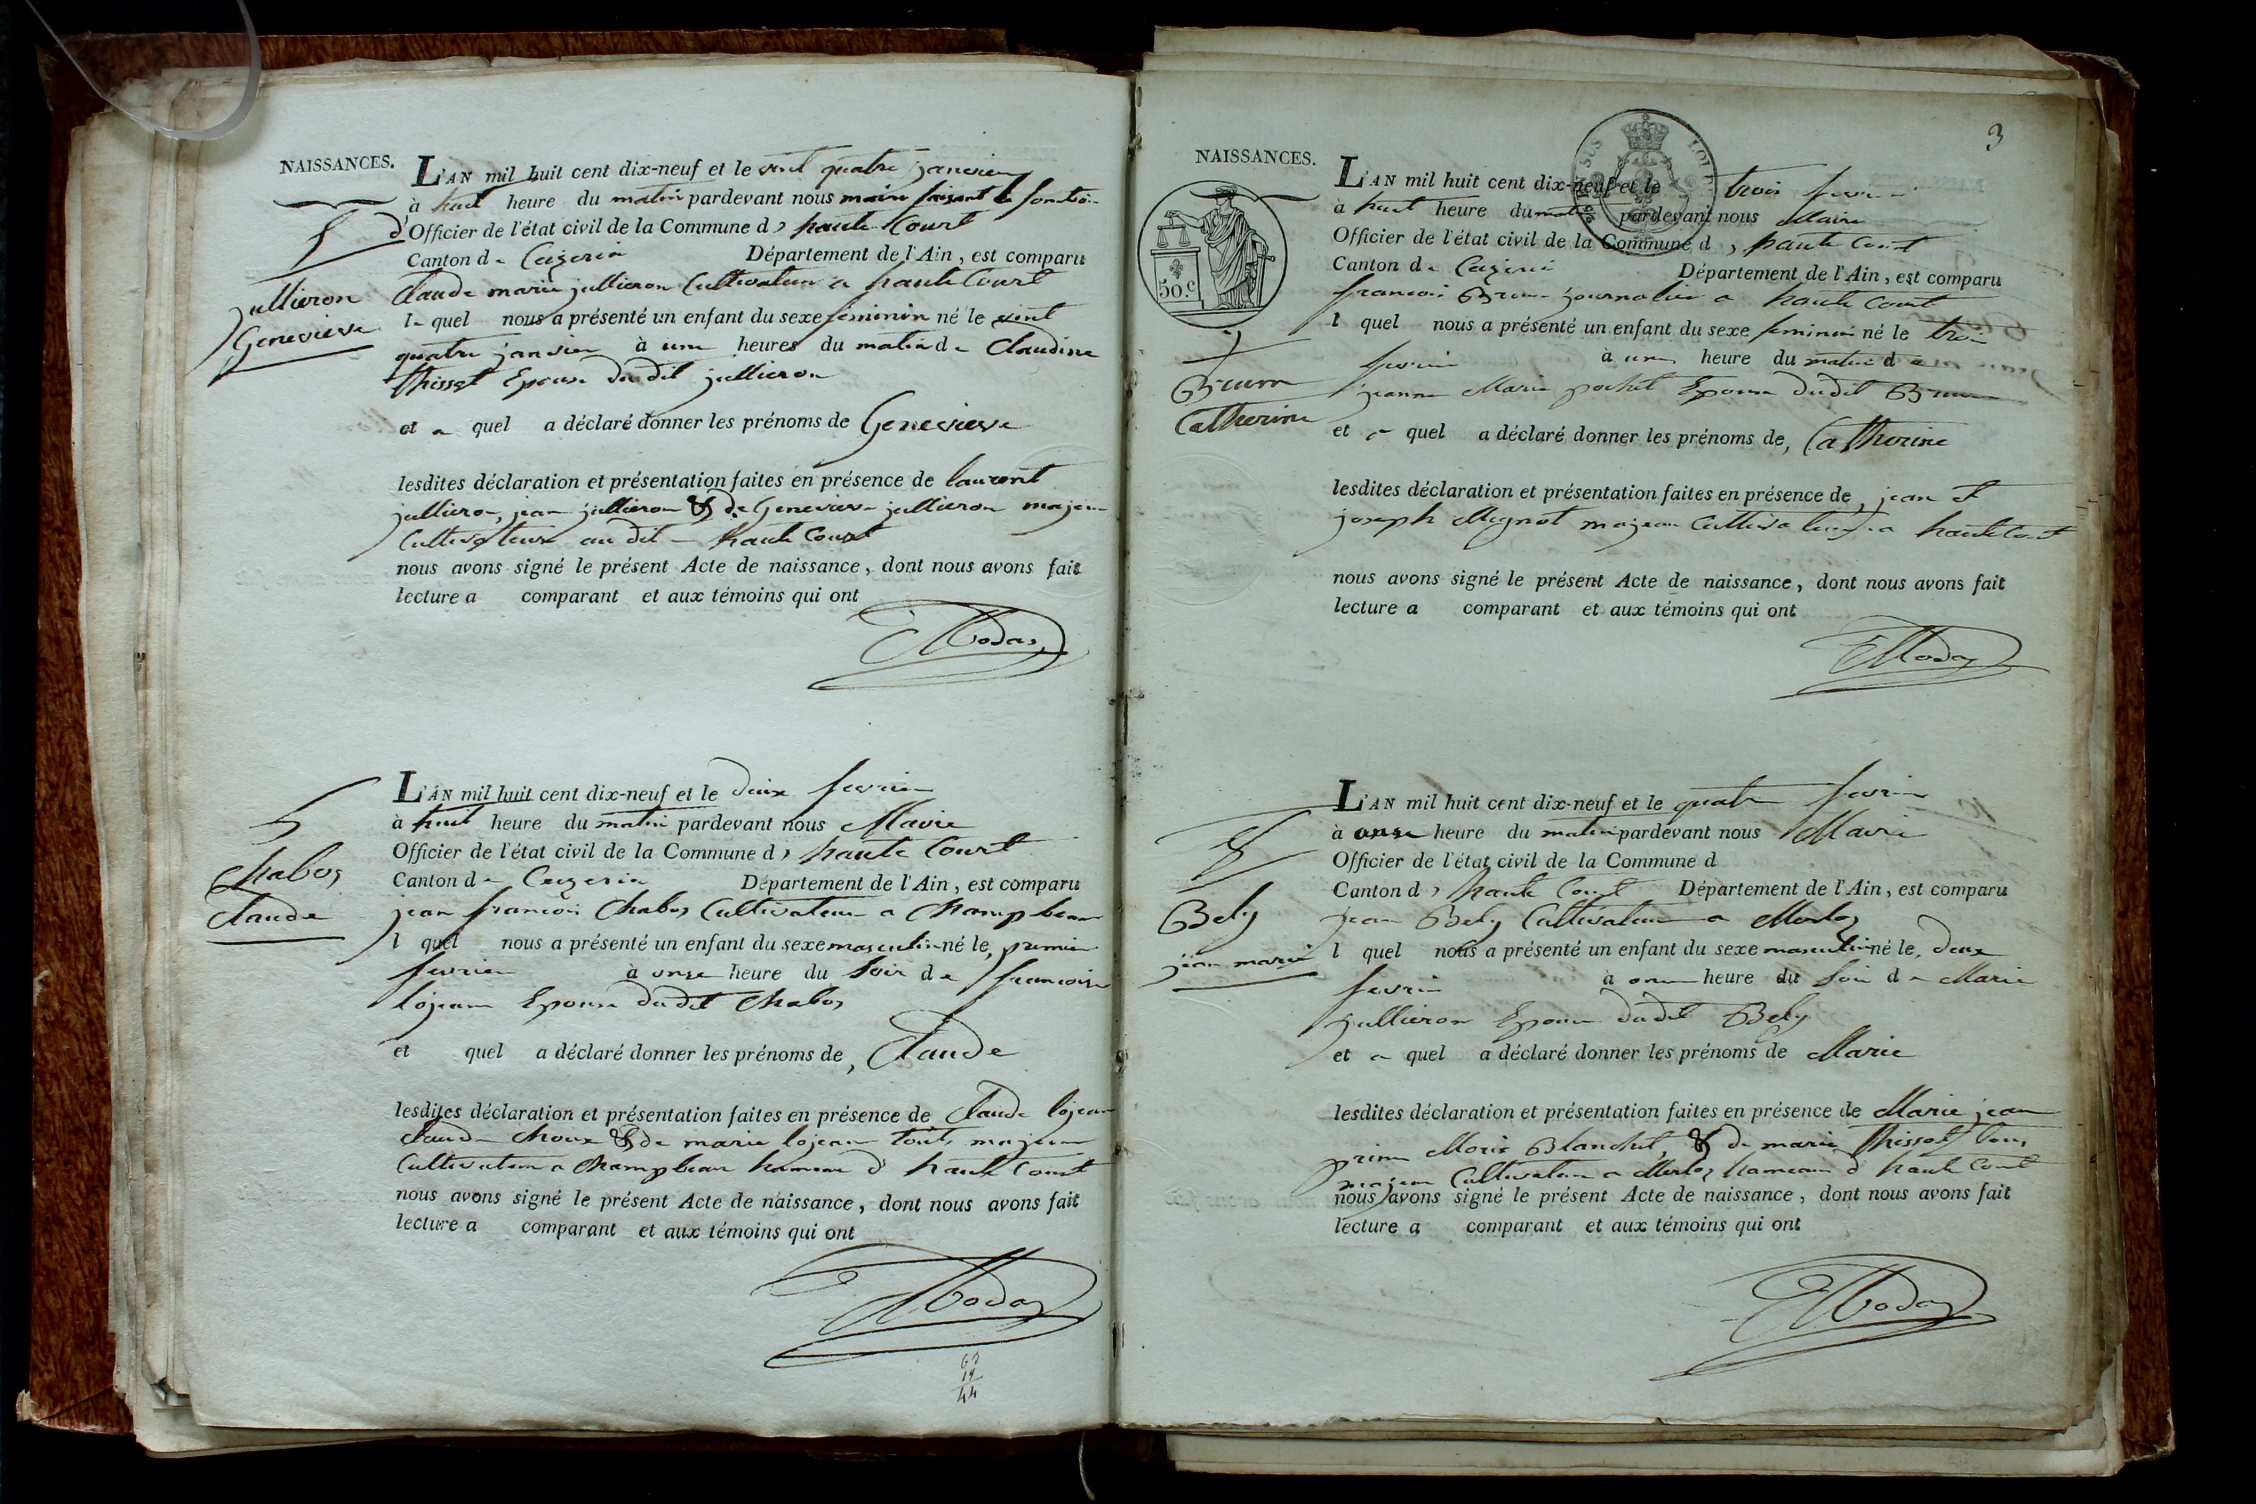 NAISSANCES.
L'AN mil huit cent dix-neuf et le vint quatre janvier
à huit heure du matin pardevant nous maire faisant les fonction
d'Officier de l'état civil de la Commune d haute Court
Canton de Ceizeria Département de l'Ain, est comparu
Claude marie jullieron Cultivateur a haute Court
le quel nous a présenté un enfant du sexe feminin né le vint
quatre janvier à une heures du matin de Claudine
thissot Epouse dudit jullieron
et a quel a déclaré donner les prénoms de Genevieve
lesdites déclaration et présentation faites en présence de laurent
jullieron, jean jullieron & de Genevieve jullieron majeur
Cultivateur au dit haute Court
nous avons signé le présent Acte de naissance, dont nous avons fait
lecture a comparant et aux témoins qui ont
jullieron
Genevieve
L'AN mil huit cent dix-neuf et le deux fevrier
à huit heure du matin pardevant nous Maire
Officier de l'état civil de la Commune d haute Court
Canton de Ceizeria Département de l'Ain, est comparu
jean francois Chabos Cultivateur a Champ beau
l quel nous a présenté un enfant du sexe masculin né le premier
fevrier à onze heure du soir de francoise
lojean Epouse dudit Chabos
et quel a déclaré donner les prénoms de, Claude
lesdites déclaration et présentation faites en présence de Claude lojean
Claude Choux & de marie lojean tout majeur
Cultivateur a Champ beau hameau d haute Court
nous avons signé le présent Acte de naissance, dont nous avons fait
lecture a comparant et aux témoins qui ont
Chabos
Claude
44
3
NAISSANCES.
50 c
L'AN mil huit cent dix-neuf et le trois fevrier
à huit heure du matin pardevant nous Maire
Officier de l'état civil de la Commune d haute Court
Canton de Ceizeria Département de l'Ain, est comparu
francois Brun journalier a haute Court
l quel nous a présenté un enfant du sexe feminin né le trois
fevrier à une heure du matin de
jeanne Marie pochet Epouse dudit Brun
et a quel a déclaré donner les prénoms de, Catherine
lesdites déclaration et présentation faites en présence de, jean et
joseph Mignot majeur Cultivateur a haute Court
nous avons signé le présent Acte de naissance, dont nous avons fait
lecture a comparant et aux témoins qui ont
Brun
Catherine
L'AN mil huit cent dix-neuf et le quatre fevrier
à onze heure du matin pardevant nous Maire
Officier de l'état civil de la Commune d
Canton d haute Court Département de l'Ain, est comparu
jean Bely Cultivateur a Merloz
l quel nous a présenté un enfant du sexe masculin né le, deux
fevrier à onze heure du soir de Marie
jullieron Epouse dudit Bely
et a quel a déclaré donner les prénoms de Marie
lesdites déclaration et présentation faites en présence de Marie jean
Marie Blanchet, & de marie thissot tous
majeur Cultivateur a Merloz hameau d haute Court
nous avons signé le présent Acte de naissance, dont nous avons fait
lecture a comparant et aux témoins qui ont
Bely
jean marie